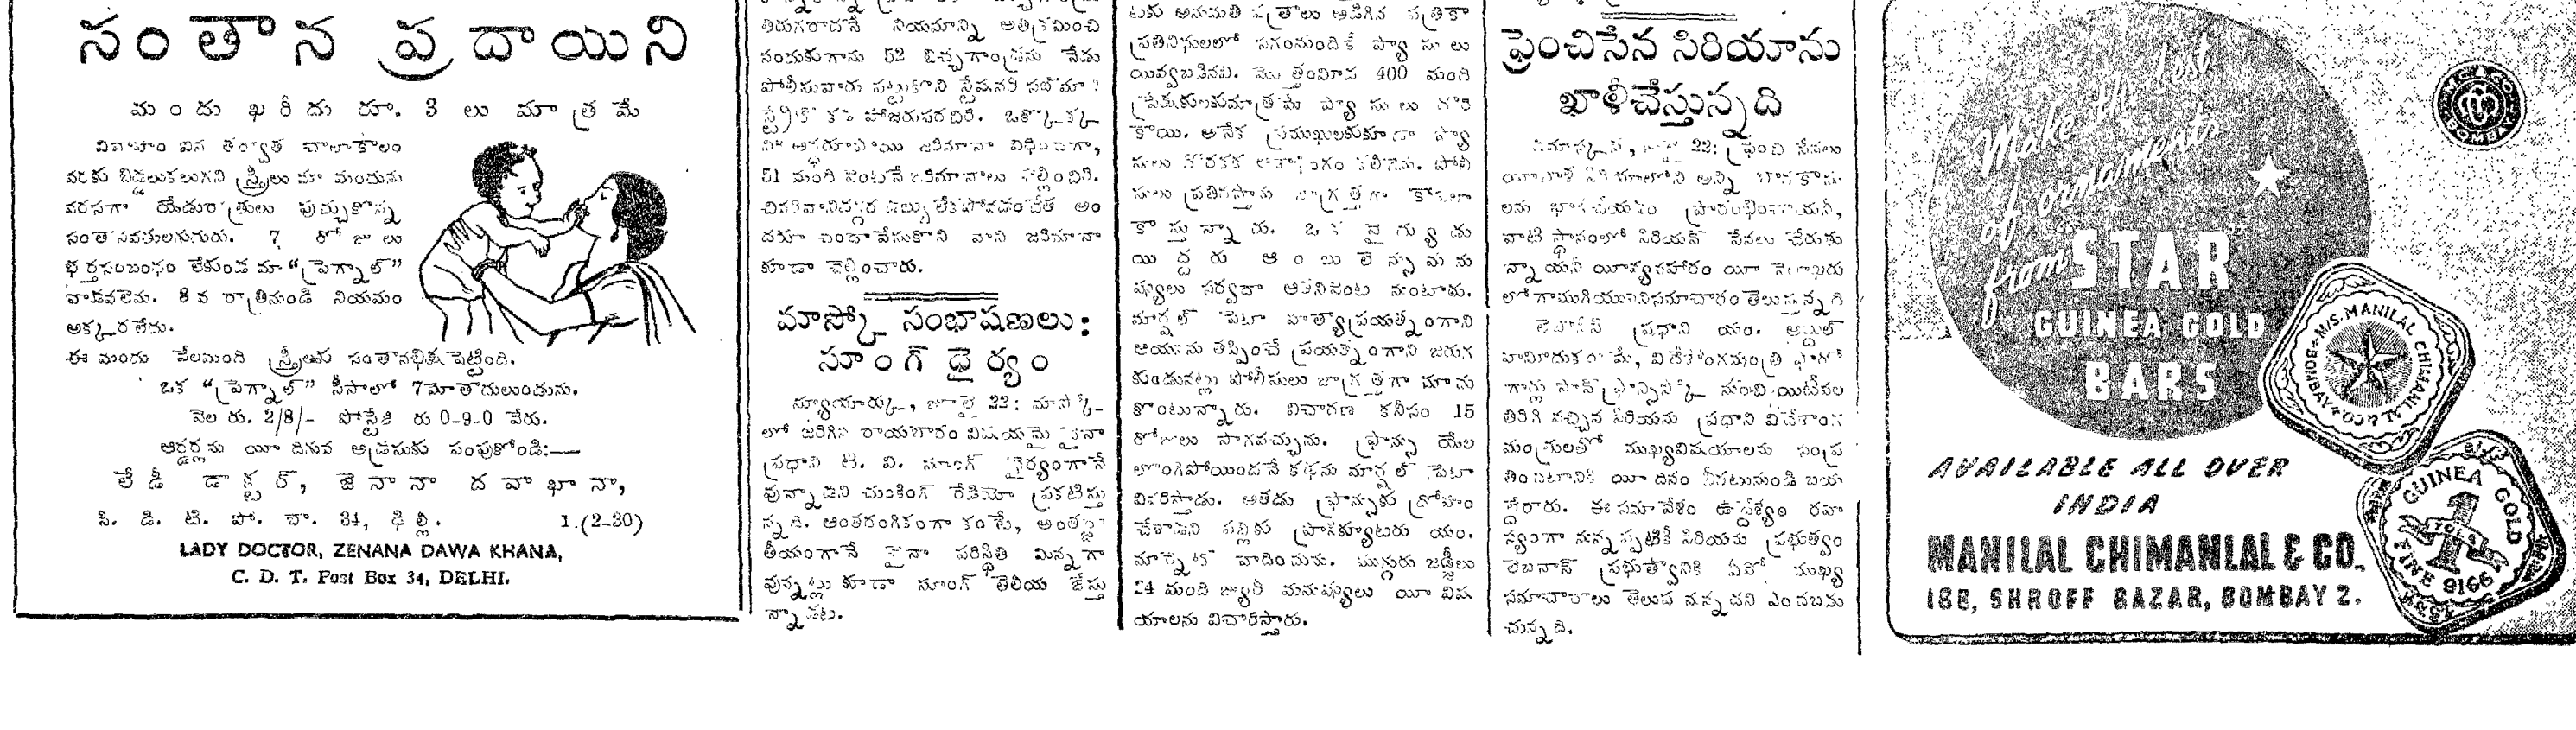 సంతాన ప్రదాయిని
మందు ఖరీదు రూ. 3 లు మాత్రమే
వివాహం ఐన తర్వాత చాలాకాలం
వరకు బిడ్డలుకలుగని స్త్రీలు మా మందును
వరసగా యేడురాత్రులు పుచ్చుకొన్న
సంతానవతులగుదురు. 7 రోజులు
భర్తసంబంధం లేకుండ మా “ప్రెగ్నాల్”
వాడవలెను. 8 వ రాత్రినుండి నియమం
అక్కరలేదు.
ఈ మందు వేలమంది స్త్రీలకు సంతానభిక్ష పెట్టింది.
ఒక “ప్రెగ్నాల్” సీసాలో 7మోతాదులుండును.
వెల రు. 2/8/- పోస్టేజి రు 0-9-0 వేరు.
ఆర్డర్లను యీ దిగువ అడ్రసుకు పంపుకోండి:—
లేడీ డాక్టర్, జెనానా దవాఖానా,
సి. డి. టి. పో. బా. 34, ఢిల్లీ. 1.(2-30)
LADY DOCTOR, ZENANA DAWA KHANA,
C. D. T. Post Box 34, DELHI.
తిరుగరాదనే నియమాన్ని అతిక్రమించి
నందుకుగాను 52 బిచ్చగాండ్రను నేడు
పోలీసువారు పట్టుకొని స్టేషనరీ
హాజరుపరచిరి. ఒక్కొక్క
జరిమానా విధించగా,
51 మంది వెంటనే జరిమానాలు చెల్లించిరి.
చివరివానివద్దర డబ్బు లేకపోవడంచేత అం
దరూ చందా వేసుకొని వాని జరిమానా
కూడా చెల్లించారు.
మాస్కో సంభాషణలు:
సూంగ్ ధైర్యం
న్యూయార్కు, జూలై 22: మాస్కో
లో జరిగిన రాయబారం విషయమై చైనా
ప్రధాని టి. వి. సూంగ్ ధైర్యంగానే
వున్నాడని చుంకింగ్ రేడియో ప్రకటిస్తు
న్నది. ఆంతరంగికంగా కంటే, అంతర్జా
తీయంగానే చైనా పరిస్థితి మిన్నగా
వున్నట్లు కూడా సూంగ్ తెలియ జేస్తు
న్నాడట.
టకు అనుమతి పత్రాలు అడిగిన పత్రికా
ప్రతినిధులలో సగంమందికే ప్యాసులు
యివ్వబడినవి. మొత్తంమీద 400 మంది
ప్రేక్షకులకుమాత్రమే ప్యాసులు దొరి
కాయి. అనేక ప్రముఖులకుకూడా ప్యా
సులు దొరకక ఆశాభంగం కలిగెను. పోలీ
సులు ప్రతిరస్తాను జాగ్రత్తగా కాపలా
కాస్తున్నారు. ఒక సైన్యుడు
యిద్దరు
సర్వదా అతనివెంట వుంటారు.
మార్షల్ పెటా హత్యాప్రయత్నంగాని
ఆయను తప్పించే ప్రయత్నంగాని జరుగ
కుండునట్లు పోలీసులు జాగ్రత్తగా చూచు
కొంటున్నారు. విచారణ కనీసం 15
రోజులు సాగవచ్చును. ఫ్రాన్సు యేల
లొంగిపోయిందనే కథను మార్షల్ పెటా
వివరిస్తాడు. అతడు ఫ్రాన్సుకు ద్రోహం
చేశాడని పబ్లికు ప్రాసిక్యూటరు యం.
వాదించును. ముగ్గురు జడ్జీలు
24 మంది జ్యురీ మనుష్యులు యీ విష
యాలను విచారిస్తారు.
ఫ్రెంచిసేన సిరియాను
ఖాళీచేస్తున్నది
22: ఫ్రెంచి సేనలు
అన్ని
లను ఖాళీచేయడం ప్రారంభించాయనీ,
వాటి స్థానంలో సిరియన్ సేనలు చేరుకు
న్నాయనీ యీవ్యవహారం యీ నెలాఖరు
లోగాముగియుననిసమాచారం తెలుస్తున్నది
లెబనీస్ ప్రధాని యం. అబ్దుల్
విదేశాంగమంత్రి
నుంచి యిటీవల
తిరిగి వచ్చిన సిరియను ప్రధాని విదేశాంగ
మంత్రులతో ముఖ్యవిషయాలను సంప్ర
తించటానికి యీ దినం బీరూటునుండి బయ
ల్దేరారు. ఈ సమావేశం ఉద్దేశ్యం రహ
స్యంగా వున్నప్పటికీ సిరియను ప్రభుత్వం
లెబనాన్ ప్రభుత్వానికి ఏవో ముఖ్య
సమాచారాలు తెలుప నున్నదని ఎంచబడు
చున్నది.
Make the best
of ornaments
from STAR
GUINEA GOLD
BARS
M/S. MANILAL CHIMANLAL & CO. BOMBAY
GUINEA GOLD
1
TOLA
FINE 9166
AVAILABLE ALL OVER
INDIA
MANILAL CHIMANLAL & CO.
188, SHROFF BAZAR, BOMBAY 2.